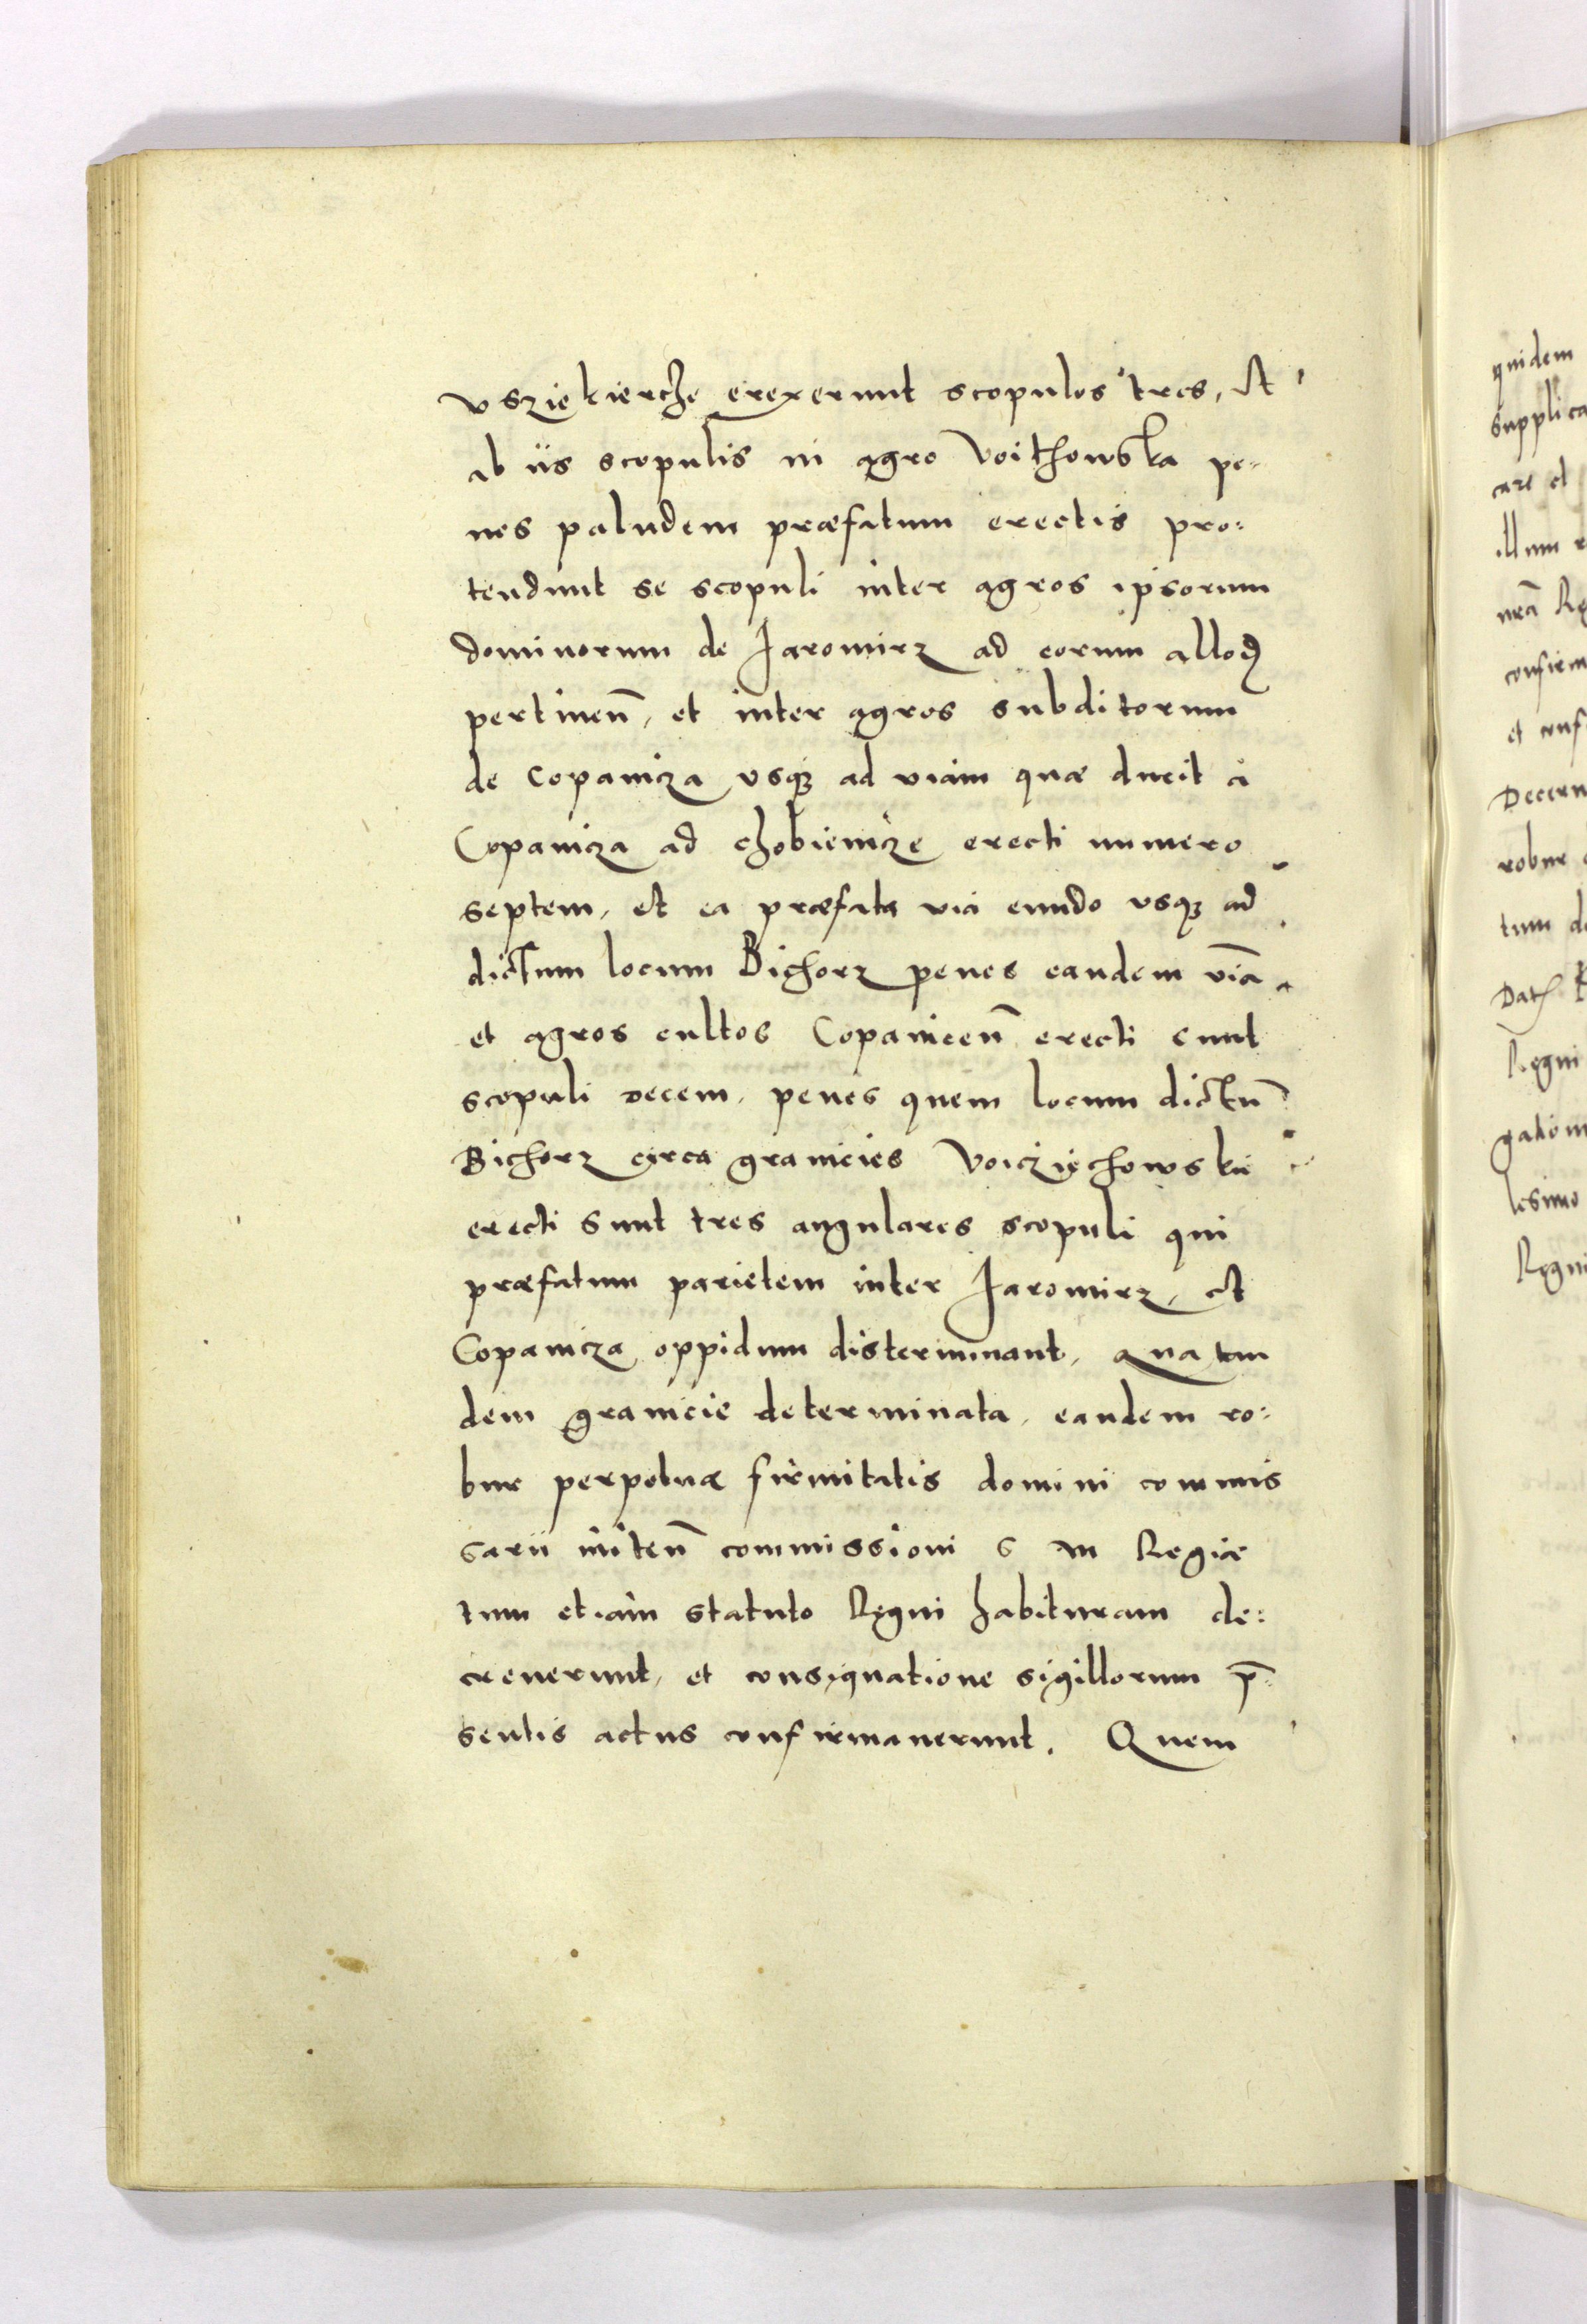 vsziekierche erexerunt scopulos tres, et
ab iis scopulis in agro Voithowska pe-
nes paludem præfatum erectis pro:
tendunt se scopuli inter agros ipsorum
dominorum de Jaromirz ad eorum allod
pertinen̄, et inter agros subditorum
de Copanicza vsq3 ad viam quæ ducit a
Copanicza ad chobienicze erecti numero
septem, et ea præfata via eundo vsq3 ad
dictum locum Bichorz penes eandem viā
et agros cultos Copanicen̄ erecti sunt
scopuli decem, penes quem locum dictū
Bichorz circa granicies Voicziechowskie
erecti sunt tres angulares scopuli qui
præfatum parietem inter Jaromirz, et
Copanicza oppidum disterminant, qua tan
dem granicie determinata, eandem ro:
bur perpetuæ firmitatis domini commis
sarii initen̄ commissioni S M Regiæ
tum etiam statuto Regni habituram de:
creuerunt, et consignatione sigillorum p̄:
sentis actus confirmauerunt. Quem
quidem
supplica
care et
illum
nrā
confirm
et conf
Decern
robur
tum
Dat
Regni
gation
lesimo
Regni